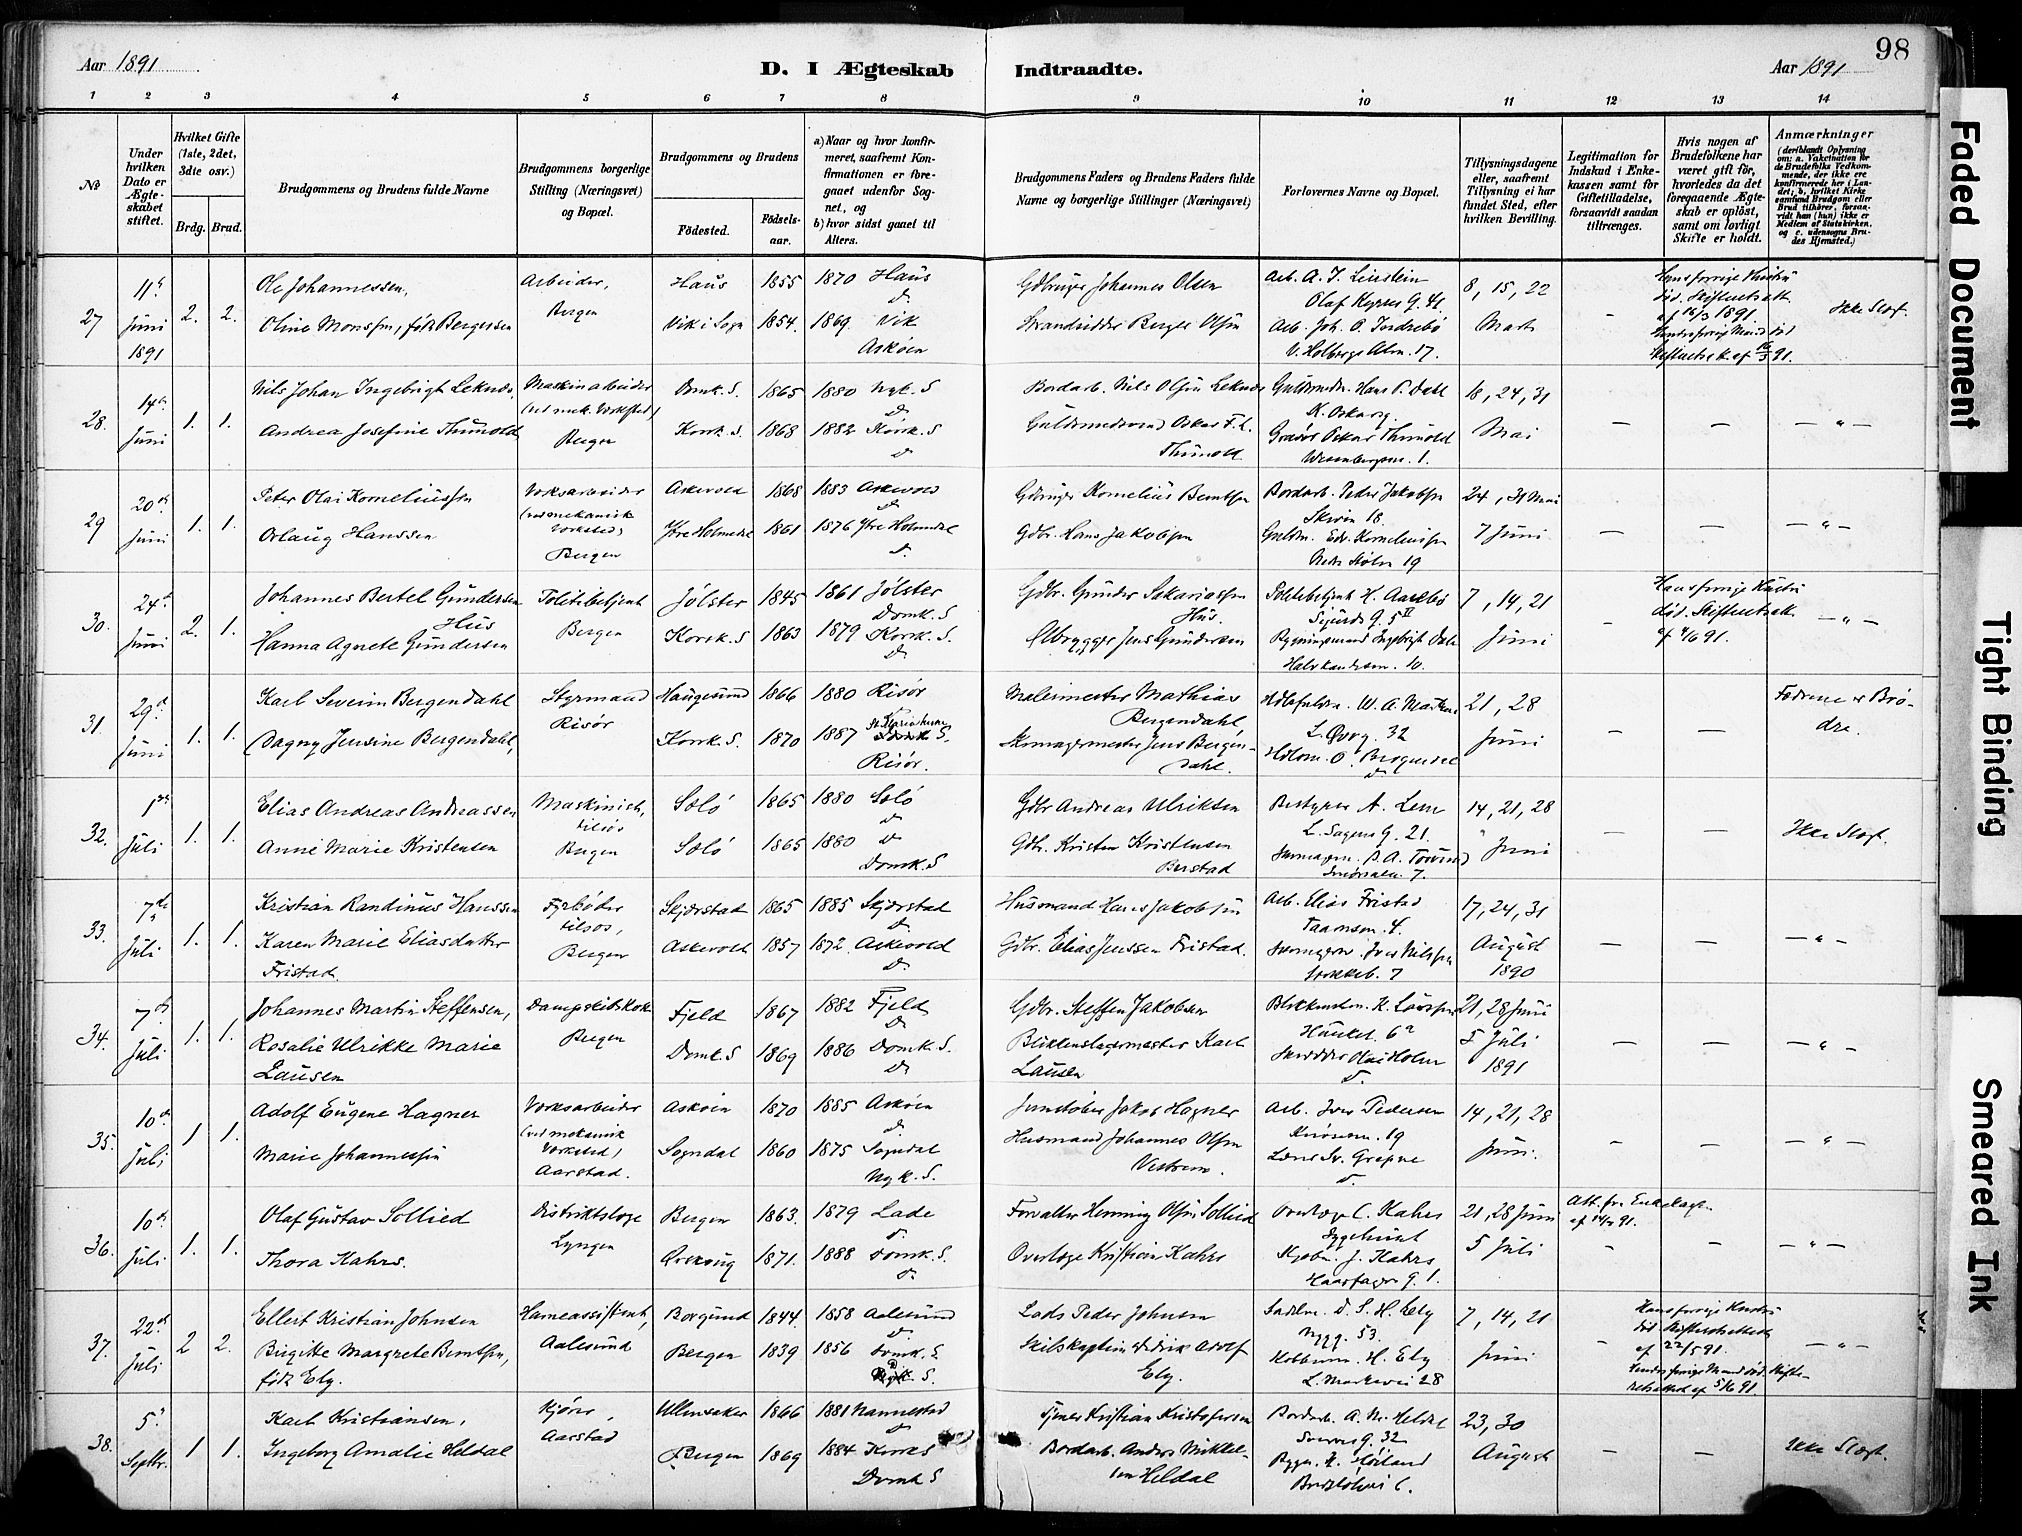 Aar 1891
D. I Ægteskab
Indtraadte.
Aar 1891
98
1 2 3 4 5 6 7 8 9 10 11 12 13 14
No
Under hvilken Dato er Ægteskabet stiftet.
Hvilket Gifte (1ste, 2det, 3dte osv.)
Brdg. Brud.
Brudgommens og Brudens fulde Navne
Brudgommens borgerlige Stilling (Næringsvei) og Bopæl.
Brudgommens og Brudens
Fødested.
Fødselsaar.
a) Naar og hvor konfirmeret, saafremt Konfirmationen er foregaaet udenfor Sognet, og
b) hvor sidst gaaet til Alters.
Brudgommens Faders og Brudens Faders fulde Navne og borgerlige Stillinger (Næringsvei)
Forlovernes Navne og Bopæl.
Tillysningsdagene eller, saafremt Tillysning ei har fundet Sted, efter hvilken Bevilling.
Legitimation for Indskud i Enkekassen samt for Giftetilladelse, forsaavidt saadan tiltrænges.
Hvis nogen af Brudefolkene har været gift før, hvorledes da det foregaaende Ægteskab er opløst, samt om lovligt Skifte er holdt.
Anmærkninger
(deriblandt Oplysning om: a. Vakcination for de Brudefolks Vedkommende, der ikke ere konfirmerede her i Landet; b. hvilket Kirkesamfund Brudgom eller Brud tilhører, forsaavidt han (hun) ikke er Medlem af Statskirken, og c. udensogns Brudes Hjemsted.)
27 11te Juni 1891 2. 2.
Ole Johannessen, Arbeider, Bergen Haus 1855 1870 Haus
Gdbruger Johannes Olsen
8, 15, 22 Marts
Oline Monssen, født Bergersen Vik i Sogn 1854. 1869. Vik
Askøen
Strandsidder Berger Olsen
Hans forrige Hustru død. Skifteattest
1891.
Ikke Slægt.
28. 14de Juni 1. 1.
Nils Johan Ingebrigt Leknes, Maskinarbeider (ved mek. Værksted) Bergen Domk. S. 1865 1880 Nyk. S
Bordarb. Nils Olsen Leknes
Guldsmdm. Hans P. Dahl
18, 24, 31 Mai
Andrea Josefine Thunold Korsk. S. 1868 1882 Korsk. S
Guldsmedsvend Oskar F. L. Thunold
Oskar Thunold
29 20de Juni 1. 1.
Peter Olai Korneliussen Værksarbeider (ved mekanisk Værksted) Bergen Askevold 1868 1883 Askevold
Gdbruger Kornelius Berntsen
Bordarb. Peder Jakobsen
Skiven 18
24, 31 Mai
7 Juni
Orlaug Hanssen Ytre Holmedal 1861 1876 Ytre Holmedal
Gdbr. Hans Jakobsen
Edv. Korneliussen
Nedre Stølen 19
30. 24de Juni 2. 1.
Johannes Bertel Gundersen Hus Politibetjent Bergen Jølster 1845 1861 Jølster
Domk. S
Gdbr. Gunder Sakariassen Hus.
Politibetjent H. Aarebø
Sigurds G. 5 II
7, 14, 21 Juni
Hanna Agnete Gundersen Korsk. S 1863 1879 Korsk. S.
Ølbrygger Jens Gundersen
Ingebrigt Dale
10.
Hans forrige Hustru død. Skifteattest af 4/6 91.
31. 29de Juni 1. 1.
Karl Severin Bergendahl Styrmand Risør Haugesund 1866 1880 Risør
Malermester Mathias Bergendahl
21, 28 Juni
L. Øvrg. 32
Dagny Jensine Bergendahl, Korsk. S. 1870 1887
Risør.
Skomagermester Jens Bergendahl.
Fædrene er Brødre.
32. 1ste Juli 1. 1.
Elias Andreas Andreassen Maskinist, tilsøs Bergen Solø 1865 1880 Solø
Gdbr Andreas Ulriksen
Bestyrer A. Lem
L. Sagens G. 21.
14, 21, 28 Juni
Anne Marie Kristensen Solø 1865 1880
Domk. S
Gdbr. Kristen Kristensen Berstad
7.
Ikke Slægt.
33. 7de Juli 1. 1.
Kristian Randinus Hanssen Fyrbøder tilsøs, Bergen Skjerstad 1865 1885 Skjerstad
Husmand Hans Jakobsen
Arb. Elias Fristad
4.
17, 24, 31 August 1890
Karen Marie Eliasdatter Fristad. Askevold 1857 1872. Askevold
Gdbr. Elias Jenssen Fristad.
Iver Nilssen
7
34. 7de Juli 1. 1.
Johannes Martin Steffensen, Dampskibskok Bergen Fjeld 1867 1882 Fjeld
Gdbr. Steffen Jakobsen
21, 28 Juni
5 Juli 1891
Rosalie Ulrikke Marie Lausen Domk. S 1869 1886 Domk. S.
Blikkenslagermester Karl Lausen
Skrædder Olai Holm
35. 10de Juli 1 1.
Adolf Eugene Hagner Værksarbeider (ved mekanisk Værksted) Aarstad. Askøen 1870 1885 Askøen
Jakob Hagner
Arb. Iver Pedersen
19
14, 21, 28 Juni.
Marie Johannessen Sogndal 1860 1875 Sogndal
Nyk. S.
Husmand Johannes Olsen Vestrem.
36. 10de Juli 1. 1.
Olaf Gustav Sollied Distriktslæge Lyngen Bergen 1863. 1879 Lade
Forvalter Henning Olsen Sollied
Overlæge C. Kahrs
21, 28 Juni
5 Juli
Att. fra Enkekassen
91.
Thora Kahrs. 1871. 1888 Domk. S.
Overlæge Kristian Kahrs
Kjøbm. J. Kahrs
Haarfagers G. 1.
37. 22de Juli 2 2.
Ellert Kristian Johnsen Havneassistent, Aalesund Borgund 1844. 1858 Aalesund
Lods Peder Johnsen
Sadelm. D. S. H. Ely
Nygg. 53.
7, 14, 21 Juni
Birgitte Margrete Berntsen, født Ely. Bergen 1839 1856 Domk. S.
Skibskaptein Didrik Adolf Ely.
Kobberm. H. Ely
L. Markevei 28
Hans forrige Hustru død. Skifteretsattest af 22/5 91.
Hendes forrige Mand død. Skifteretsattest af 5/6 91
38. 5te Septbr. 1 1.
Karl Kristiansen, Kjører, Aarstad Ullensaker 1866 1881 Nannestad
Kristian Kristofersen
Bordarb. A. M. Heldal
32
23, 30 August
Ingeborg Amalie Heldal Bergen 1869 1884 Korsk S
Domk S
Bordarb. Anders Mikkelsen Heldal
Bygm. A. Høiland
6.
Ikke Slægt.
Faded Document
Tight Binding
Smeared Ink